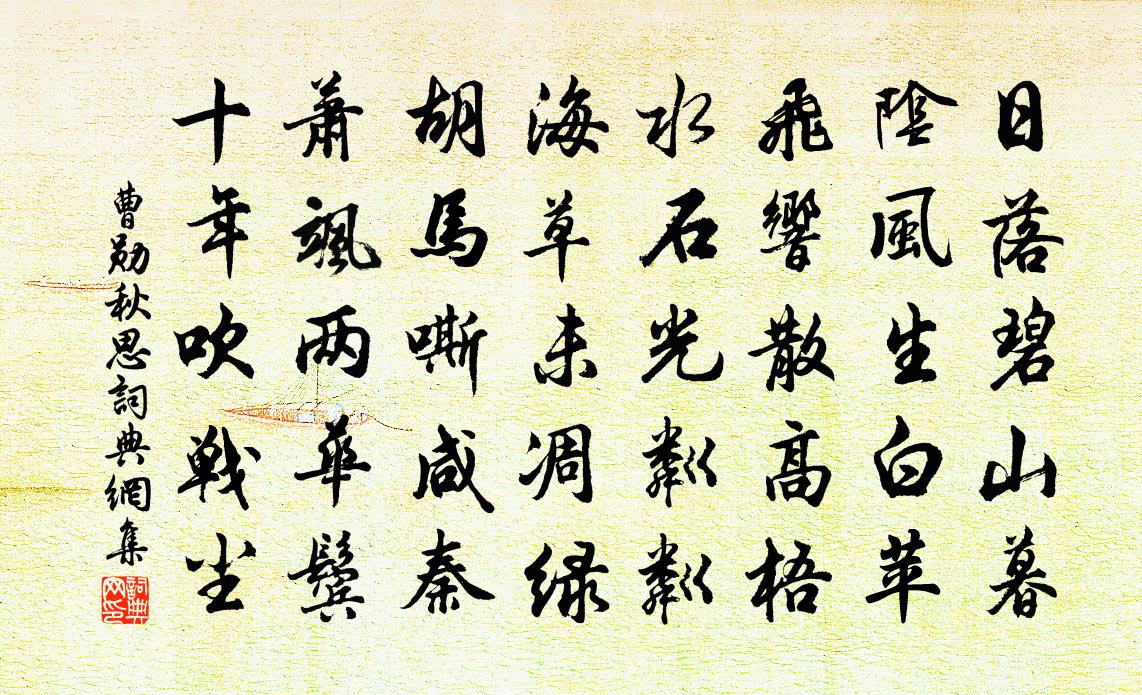 日落碧山暮
陰風生白苹
飛響散高梧
水石光粼粼
海草未凋绿
胡馬嘶咸秦
蕭颯两華鬓
十年吹戦尘
曹勛秋思詞典網集
詞典网印